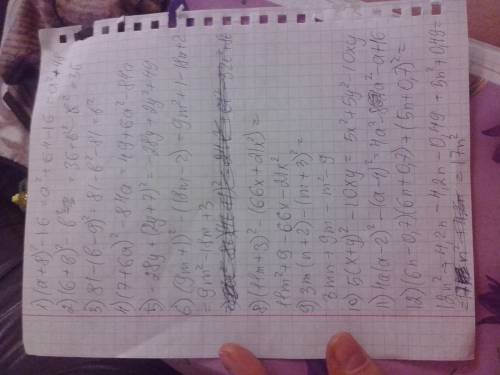 1) (a+8)² - 16 = a² + 64 - 16 = a² + 48
2) (6+b)² - b² = 36 + b² - b² = 36
3) 81 - (b-9)² = 81 - b² - 81 = b²
4) (7+6a)² - 84a = 49 + 6a² - 84a
5) -28y + (2y+7)² = -28y + 2y² + 49
6) (9m+1)² - (18m-2) = 9m² + 1 - 18m + 2
= 9m² - 18m + 3
8) (11m+3)² - (66x + 21x²) =
11m² + 9 - 66x - 21x²
9) 3m(n+2) - (m+3)² =
3mn + 9m - m² - 9
10) 5(x+y)² - 10xy = 5x² + 5y² - 10xy
11) 4a(a-2)² - (a-4)² = 4a³ - 8a² - a + 16
12) (6n-0,7)(6n+0,7) + (5n+0,7)² =
12n² - 4,2n - 4,2n - 0,49 + 5n² + 0,49 =
= 17n²